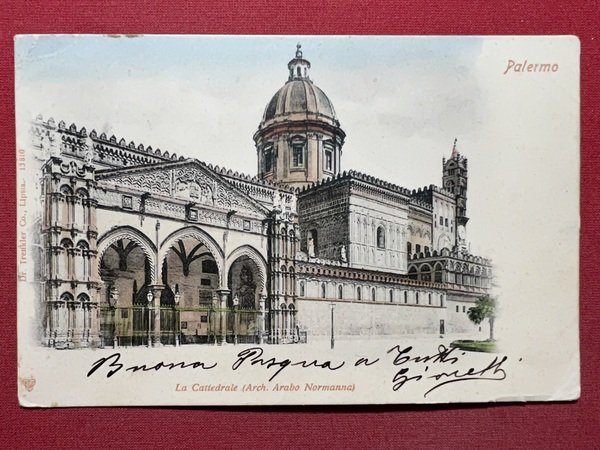 Palermo
Dr. Trenkler Co., Lipsia. 13810
Buona Pasqua a Tutti
La Cattedrale (Arch. Arabo Normanna)